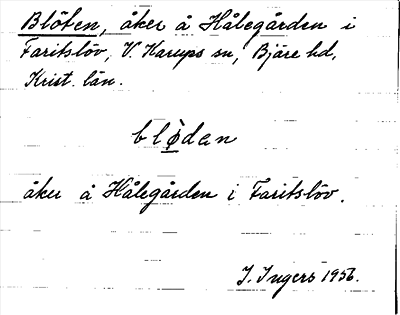 Blöten, åker å Hålegården i
Faritslöv, V. Karups sn, Bjäre hd,
Krist. län.
blø̀dan
åker å Hålegården i Faritslöv.
I. Ingers 1956.